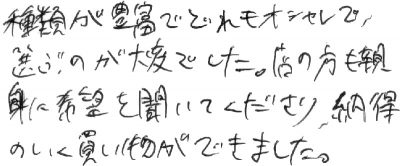 種類が豊富でどれもオシャレで、
選ぶのが大変でした。店の方も親
身に希望を聞いてくださり、納得
のいく買い物ができました。